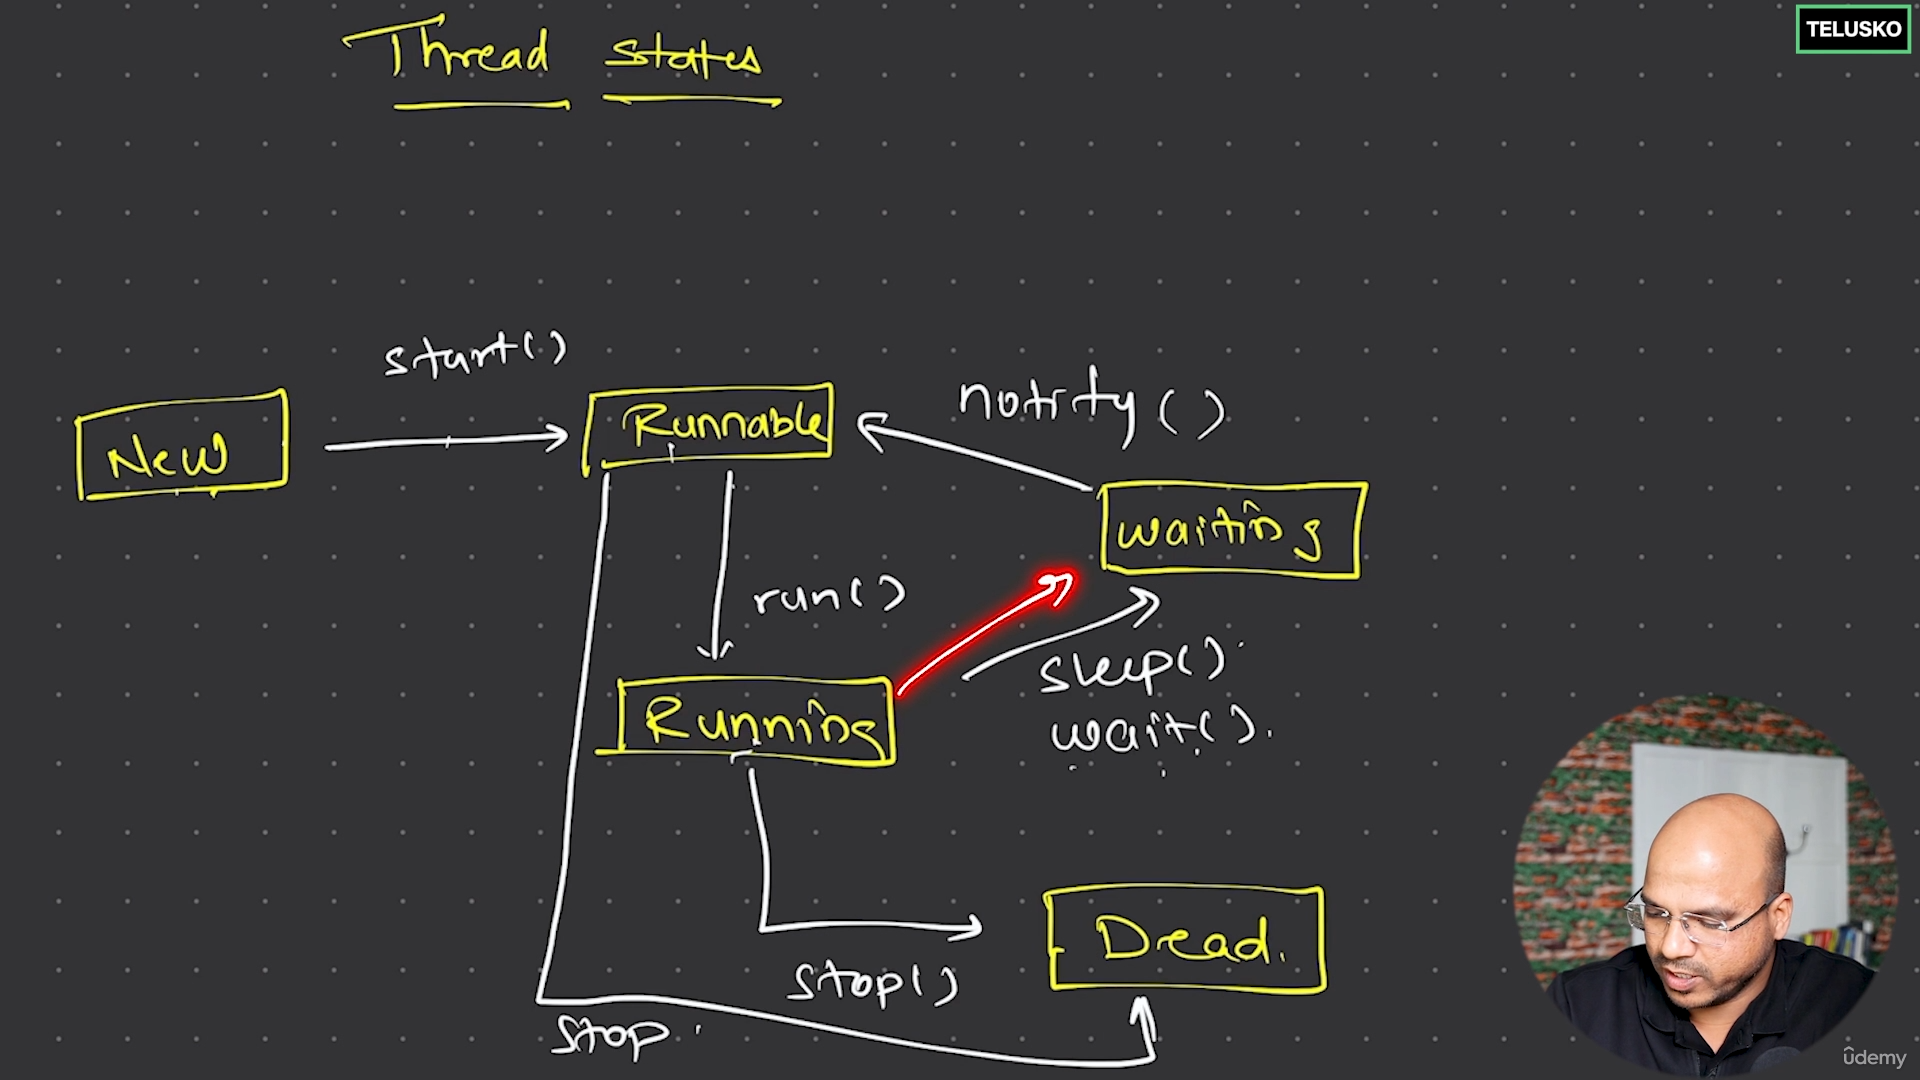 TELUSKO
Thread States
start()
New
Runnable
notify()
waiting
run()
sleep().
wait().
Running
Dead.
stop()
stop.
ûdemy